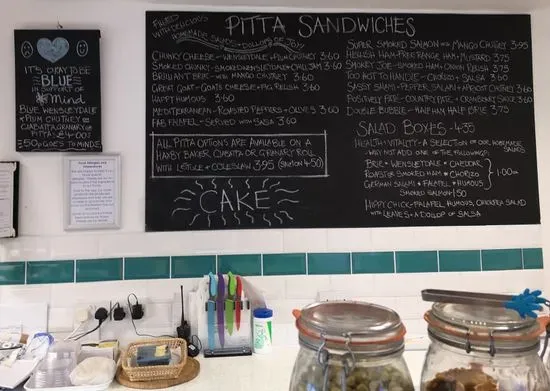 IT'S OKAY TO BE
BLUE
IN SUPPORT OF
Mind
BLUE WENSLEYDALE
+ PLUM CHUTNEY ON
CIABATTA, GRANARY OR
PITTA £4.00
50p GOES TO MIND
FILLED
WITH DELICIOUS
HOMEMADE SALADS + DOLLOPS OF JOY!
PITTA SANDWICHES
CHUNKY CHEESE - WENSLEYDALE + PLUM CHUTNEY 3.60
SMOKED CHUNKY - SMOKED WENSLEYDALE + ONION JAM 3.60
BRILLIANT BRIE - WITH MANGO CHUTNEY 3.60
GREAT GOAT - GOATS CHEESE + FIG RELISH 3.60
HAPPY HUMOUS 3.60
MEDITERRANEAN - ROASTED PEPPERS + OLIVES 3.60
FAB FALAFEL - SERVED WITH SALSA 3.60
ALL PITTA OPTIONS ARE AVAILABLE ON A
HAXBY BAKER CIABATTA OR GRANARY ROLL
WITH LETTUCE + COLESLAW 3.95 (SALMON 4.50)
CAKE
SUPER SMOKED SALMON WITH MANGO CHUTNEY 3.95
HELLISH HAM - FREE RANGE HAM + MUSTARD 3.75
SMOKEY JOE - SMOKED HAM + ONION RELISH 3.75
TOO HOT TO HANDLE - CHORIZO + SALSA 3.60
SASSY SALAMI - PEPPER SALAMI + APRICOT CHUTNEY 3.60
POSITIVELY PATE - COUNTRY PATE + CRANBERRY SAUCE 3.60
DOUBLE BUBBLE - HALF HAM HALF BRIE 3.75
SALAD BOXES - 4.35
HEALTH + VITALITY - A SELECTION OF OUR HOMEMADE
SALADS
WHY NOT ADD ONE OF THE FOLLOWING?:
BRIE + WENSLEYDALE + CHEDDAR
ROASTED SMOKED HAM + CHORIZO
GERMAN SALAMI + FALAFEL + HUMOUS
} 1.00 EACH
SMOKED SALMON 1.50
HIPPY CHICK - FALAFEL, HUMOUS, CHICKPEA SALAD
WITH LEAVES + A DOLLOP OF SALSA